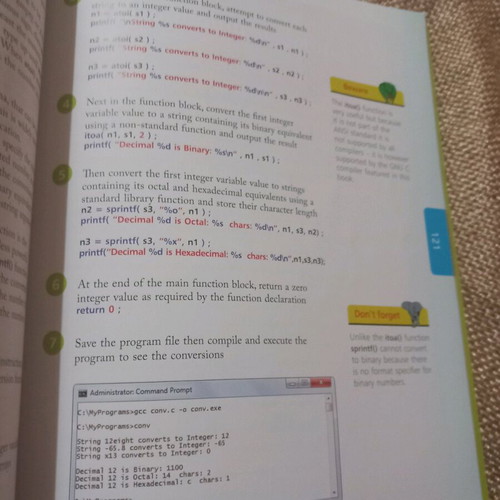 function block, attempt to convert each
string to an integer value and output the results
n1 = atoi( s1 ) ;
printf( "\nString %s converts to Integer: %d\n" , s1 , n1 ) ;
n2 = atoi( s2 ) ;
printf( "String %s converts to Integer: %d\n" , s2 , n2 ) ;
n3 = atoi( s3 ) ;
printf( "String %s converts to Integer: %d\n\n" , s3 , n3 ) ;
4
Next in the function block, convert the first integer
variable value to a string containing its binary equivalent
using a non-standard function and output the result
itoa( n1, s1, 2 ) ;
printf( "Decimal %d is Binary: %s\n" , n1 , s1 ) ;
5
Then convert the first integer variable value to strings
containing its octal and hexadecimal equivalents using a
standard library function and store their character length
n2 = sprintf( s3, "%o", n1 ) ;
printf( "Decimal %d is Octal: %s chars: %d\n", n1, s3, n2) ;
n3 = sprintf( s3, "%x", n1 ) ;
printf("Decimal %d is Hexadecimal: %s chars: %d\n",n1,s3,n3);
6
At the end of the main function block, return a zero
integer value as required by the function declaration
return 0 ;
7
Save the program file then compile and execute the
program to see the conversions
Administrator: Command Prompt
C:\MyPrograms>gcc conv.c -o conv.exe
C:\MyPrograms>conv
String 12eight converts to Integer: 12
String -65.8 converts to Integer: -65
String x13 converts to Integer: 0
Decimal 12 is Binary: 1100
Decimal 12 is Octal: 14 chars: 2
Decimal 12 is Hexadecimal: c chars: 1
Beware
The itoa() function is
very useful but because
it is not part of the
ANSI standard it is
not supported by all
compilers – it is however
supported by the GNU C
compiler featured in this
book.
121
Don't forget
Unlike the itoa() function
sprintf() cannot convert
to binary because there
is no format specifier for
binary numbers.